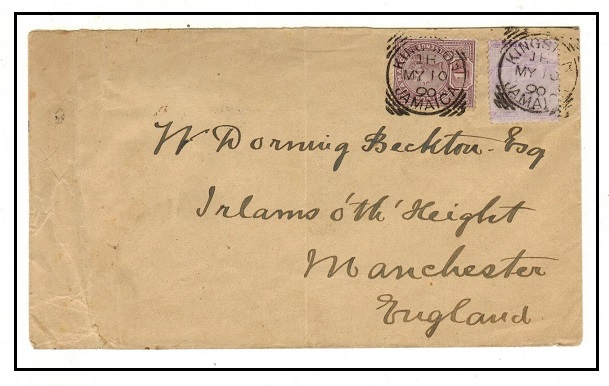 KINGSTON
1H
MY 10
90
JAMAICA
KINGSTON
1H
MY 10
90
JAMAICA
W Dorming Beckton Esq
Irlams o'th' Height
Manchester
England